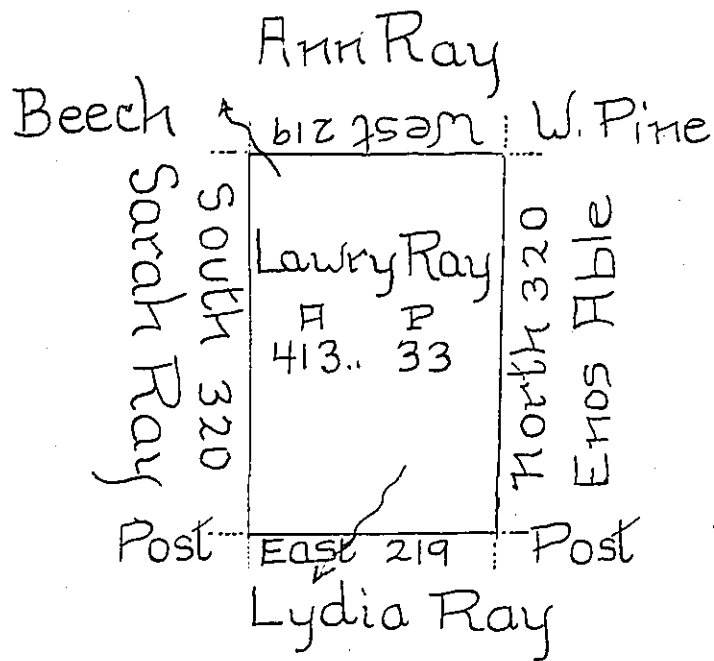 Ann Ray
Beech
West 219
W. Pine
Sarah Ray
South 320
Lawry Ray
A P
413.. 33
North 320
Enos Able
Post
East 219
Post
Lydia Ray